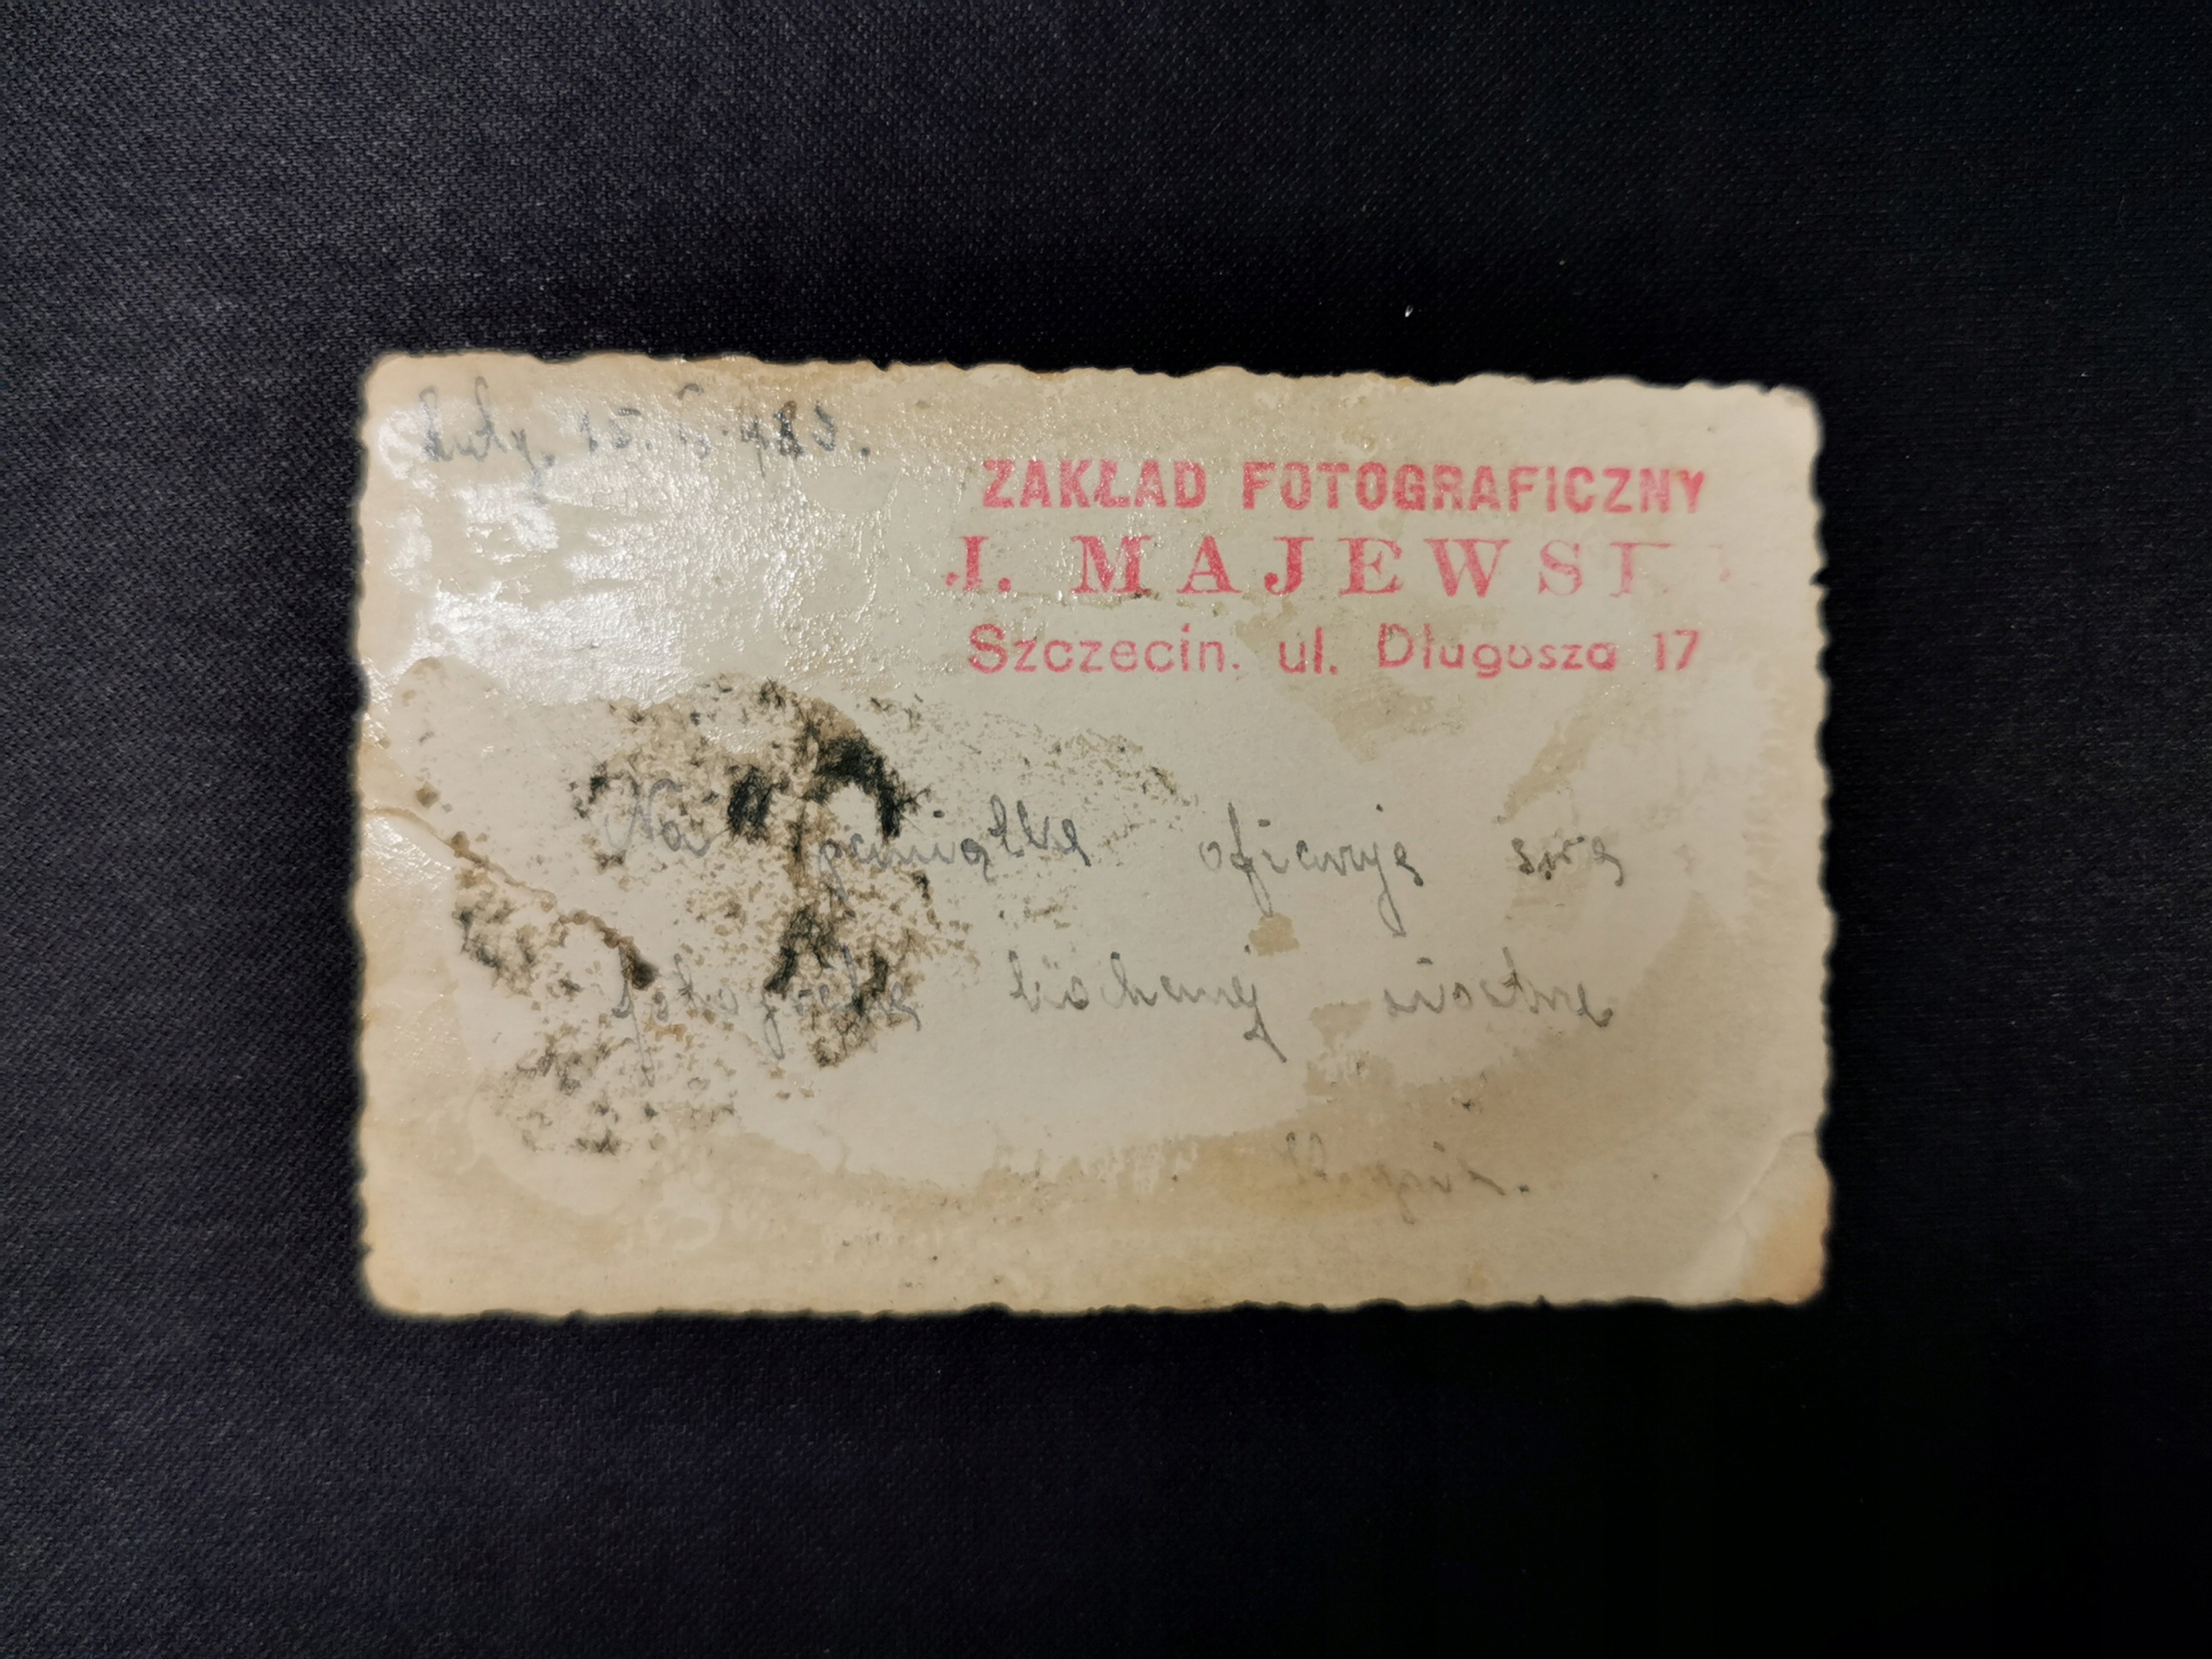 ZAKŁAD FOTOGRAFICZNY
J. MAJEWSK
Szczecin. ul. Długosza 17
Na pamiątkę ofiaruję swą
fotografię kochanej siostrze